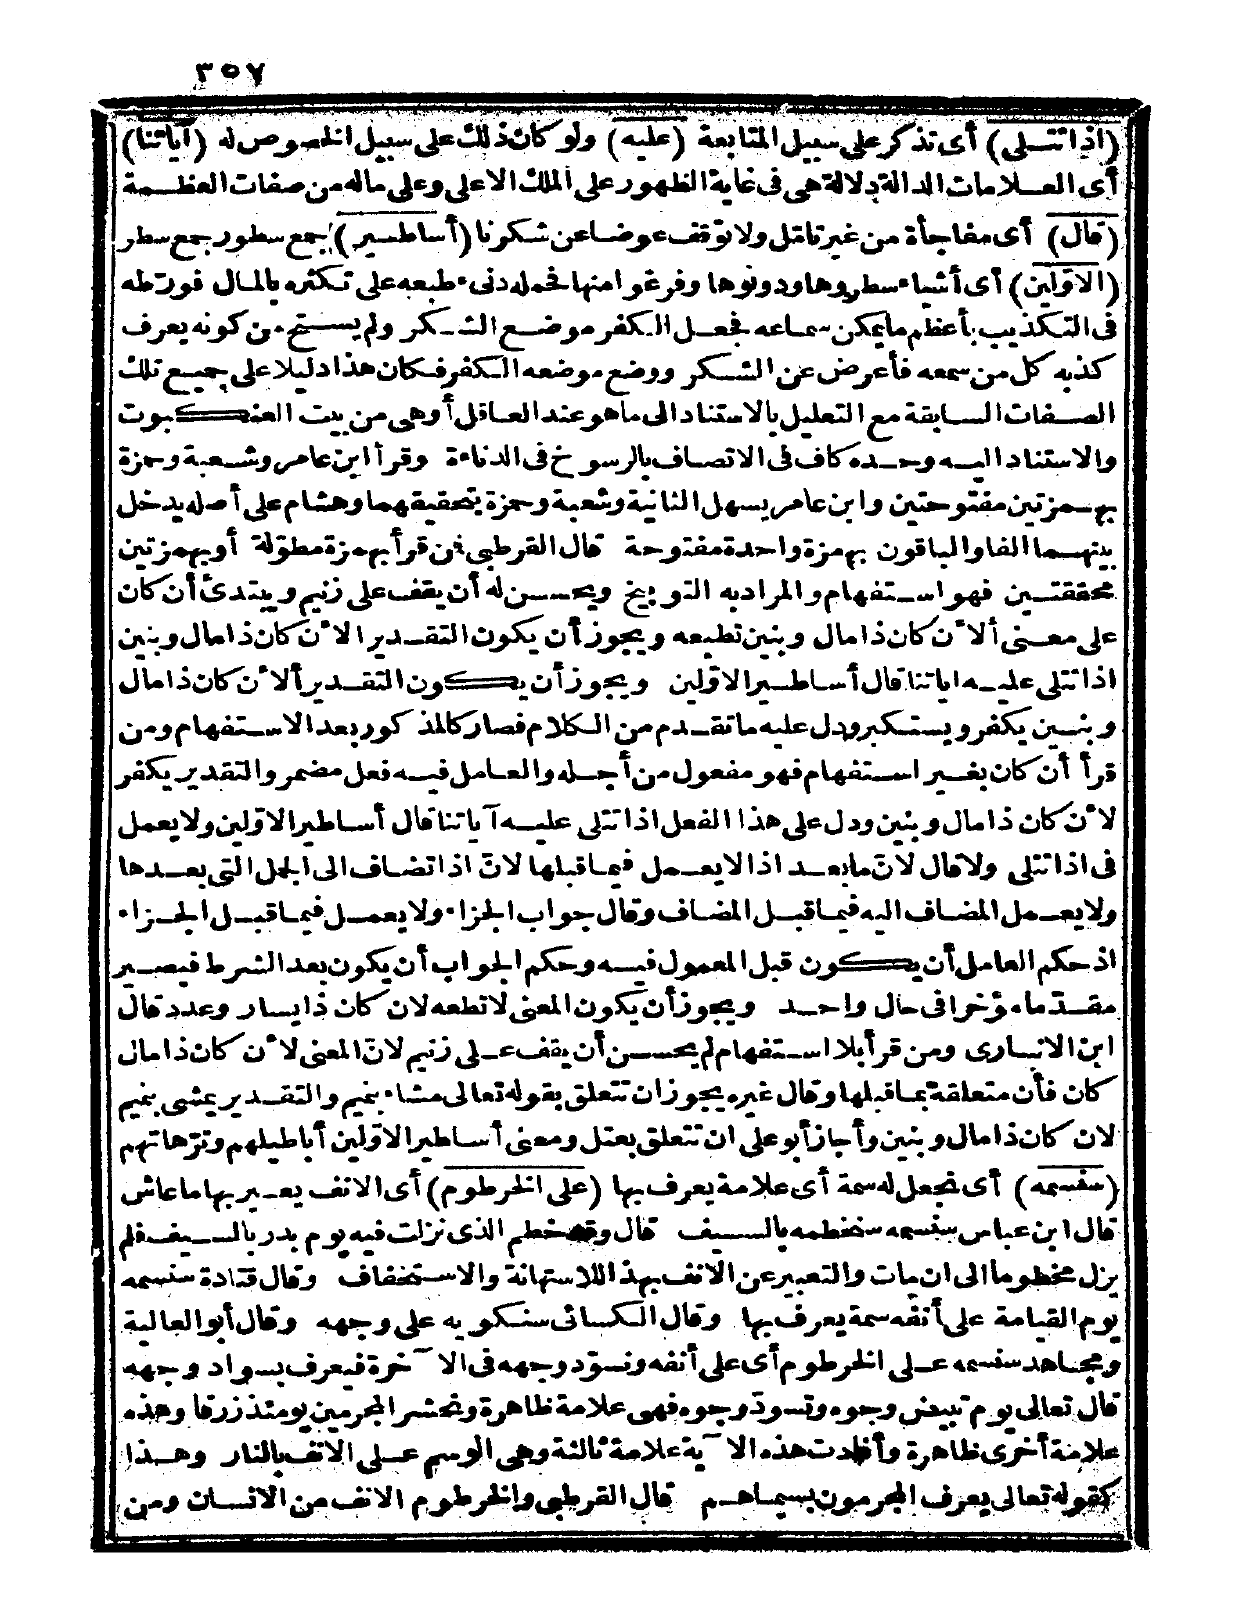 ٣٥٧
(اذا تتلى) أى تذكر على سبيل المتابعة (عليه) ولو كان ذلك على سبيل الخصوص له (آياتنا)
أى العلامات الدالة دلالة هى فى غاية الظهور على الملك الاعلى وعلى ماله من صفات العظمة
(قال) أى مفاجأة من غير تامّل ولا توقف عوضا عن شكرنا (أساطير) جمع سطور جمع سطر
(الاوّلين) أى أشياء سطروها ودونوها وفرغوا منها فحمله دنىء طبعه على تكثره بالمال فورّطه
فى التكذيب بأعظم ما يمكن سماعه فجعل الكفر موضع الشكر ولم يستح من كونه يعرف
كذبه كل من سمعه فأعرض عن الشكر ووضع موضعه الكفر فكان هذا دليلا على جميع تلك
الصفات السابقة مع التعليل بالاستناد الى ما هو عند العاقل أوهى من بيت العنكبوت
والاستناد اليه وحده كاف فى الاتصاف بالرسوخ فى الدناءة وقرأ ابن عامر وشعبة وحمزة
بهمزتين مفتوحتين وابن عامر يسهل الثانية وشعبة وحمزة بتحقيقهما وهشام على أصله يدخل
بينهما الفا والباقون بهمزة واحدة مفتوحة قال القرطبى فن قرأ بهمزة مطوّلة أو بهمزتين
محققتين فهو استفهام والمراد به التوبيخ ويحسن له أن يقف على زنيم ويبتدئ أن كان
على معنى ألأن كان ذا مال وبنين تطيعه ويجوز أن يكون التقدير الأن كان ذا مال وبنين
اذا تتلى عليه اياتنا قال أساطير الاوّلين ويجوز أن يكون التقدير ألأن كان ذا مال
وبنين يكفر ويستكبر ودل عليه ما تقدم من الكلام فصار كالمذكور بعد الاستفهام ومن
قرأ أن كان بغير استفهام فهو مفعول من أجله والعامل فيه فعل مضمر والتقدير يكفر
لأن كان ذا مال وبنين ودل على هذا الفعل اذا تتلى عليه آياتنا قال أساطير الاوّلين ولا يعمل
فى اذا تتلى ولا قال لانّ ما بعد اذا لا يعمل فيما قبلها لانّ اذا تضاف الى الجمل التى بعدها
ولا يعمل المضاف اليه فيما قبل المضاف وقال جواب الجزاء ولا يعمل فيما قبل الجزاء
اذ حكم العامل أن يكون قبل المعمول فيه وحكم الجواب أن يكون بعد الشرط فيصير
مقدّما مؤخرا فى حال واحد ويجوز أن يكون المعنى لا تطعه لان كان ذا يسار وعدد قال
ابن الانبارى ومن قرأ بلا استفهام لم يحسن أن يقف على زنيم لانّ المعنى لأن كان ذا مال
كان فأن متعلقة بما قبلها وقال غيره يجوز ان تتعلق بقوله تعالى مشاء بنميم والتقدير يمشى بنميم
لان كان ذا مال وبنين وأجاز أبو على ان تتعلق بعتل ومعنى أساطير الاوّلين أباطيلهم وترّهاتهم
(سنسمه) أى نجعل له سمة أى علامة يعرف بها (على الخرطوم) أى الانف يعير بها ما عاش
قال ابن عباس سنسمه سنخطمه بالسيف قال وقد خطم الذى نزلت فيه يوم بدر بالسيف فلم
يزل مخطوما الى ان مات والتعبير عن الانف بهذا للاستهانة والاستخفاف وقال قتادة سنسمه
يوم القيامة على أنفه سمة يعرف بها وقال الكسائى سنكويه على وجهه وقال أبو العالية
ومجاهد سنسمه على الخرطوم أى على أنفه ونسوّد وجهه فى الآخرة فيعرف بسواد وجهه
قال تعالى يوم تبيض وجوه وتسودّ وجوه فهى علامة ظاهرة ونحشر المجرمين يومئذ زرقا وهذه
علامة أخرى ظاهرة وأفادت هذه الآية علامة ثالثة وهى الوسم على الانف بالنار وهذا
كقوله تعالى يعرف المجرمون بسيماهم قال القرطبى والخرطوم الانف من الانسان ومن